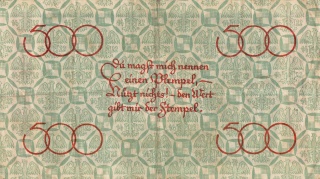 500 500
Du magst mich nennen
einen Plempel,
Nützt nichts! – den Wert
gibt mir der Stempel.
500 500